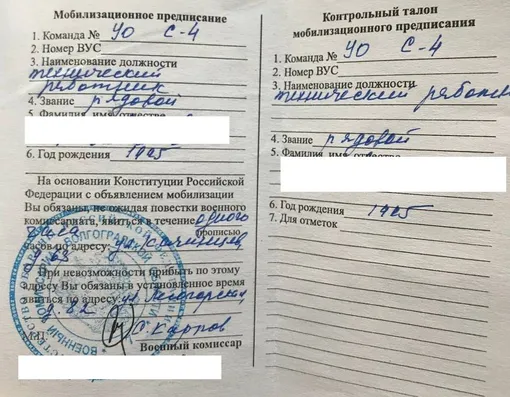 Мобилизационное предписание
1. Команда № УО С-4
2. Номер ВУС
3. Наименование должности
технический
работник
4. Звание рядовой
5. Фамилия, имя, отчество
6. Год рождения 1985
На основании Конституции Российской
Федерации с объявлением мобилизации
Вы обязаны, не ожидая повестки военного
комиссариата, явиться в течение одного
часа прописью
часов по адресу: ул. Качинцев
63
При невозможности прибыть по этому
адресу Вы обязаны в установленное время
явиться по адресу: ул.
д. 82
М.П. С. Карпов
Военный комиссар
Контрольный талон
мобилизационного предписания
1. Команда № УО С-4
2. Номер ВУС
3. Наименование должности
технический работник
4. Звание рядовой
5. Фамилия, имя, отчество
6. Год рождения 1985
7. Для отметок